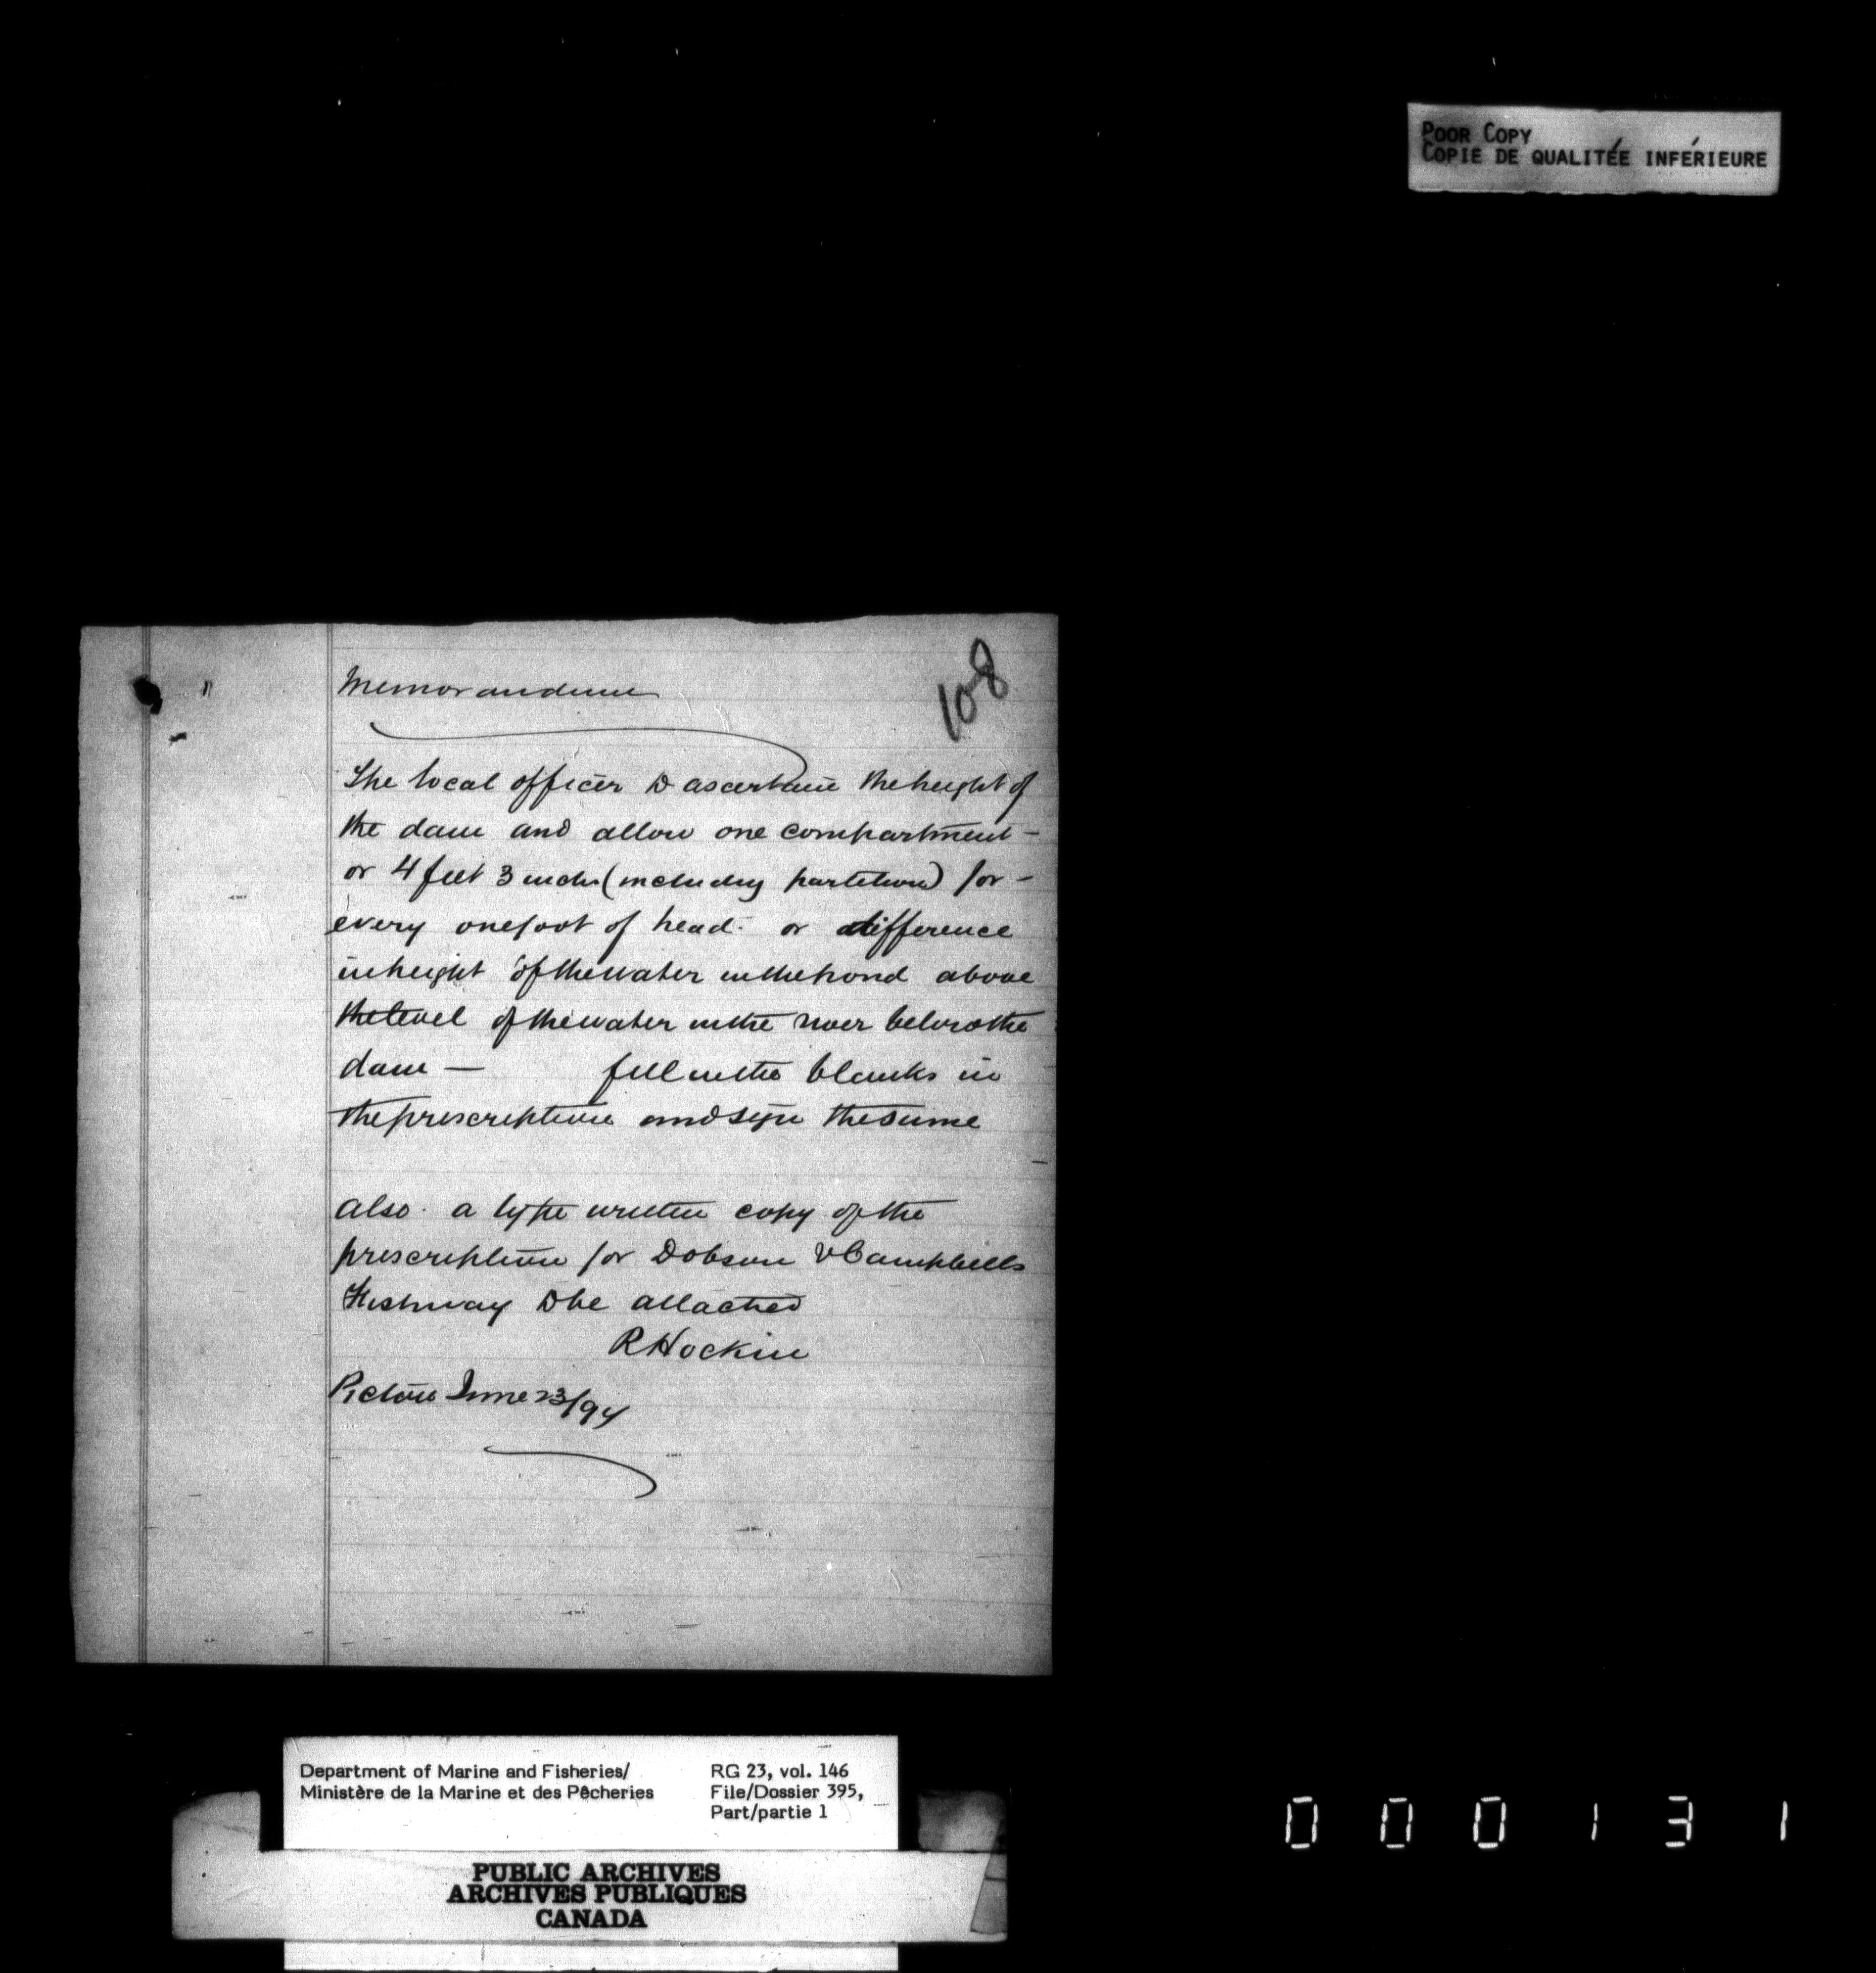 POOR COPY
COPIE DE QUALITÉE INFÉRIEURE
108
Memorandum
The local officer to ascertain the height of
the dam and allow one compartment -
or 4 feet 3 inches (including partition) for -
every one foot of head. or difference
in height of the water in the pond above
the level of the water in the river below the
dam — fill in the blanks in
the prescription and sign the same
Also. a type written copy of the
prescription for Dobson & Campbells
Fishway to be attached
R Hockin
Pictou June 23/94
Department of Marine and Fisheries/
Ministère de la Marine et des Pêcheries
RG 23, vol. 146
File/Dossier 395,
Part/partie 1
PUBLIC ARCHIVES
ARCHIVES PUBLIQUES
CANADA
000131